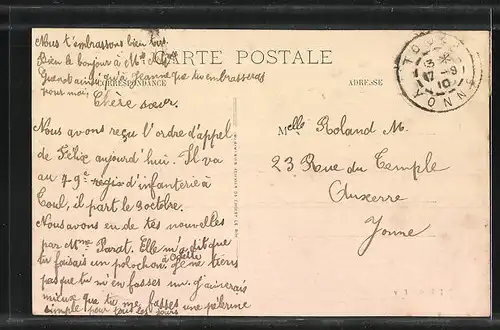 Nous t'embrassons bien fort
Bien le bonjour à Mr Mme
CARTE POSTALE
ainsi qu'à Jeanne que tu embrasseras
pour moi,
CORRESPONDANCE
ADRESSE
TOUCY
13
17-9
10
YONNE
Chère sœur.
Nous avons reçu l'ordre d'appel
de Félix aujourd'hui. Il va
au 49e régis d'infanterie à
Toul, il part le 3 octobre.
Nous avons eu de tes nouvelles
par Mme Parat. Elle m'a dit que
tu faisais un polochon à Odette je ne tiens
pas que tu m'en fasses un. j'aimerais
mieux que tu me fasses une pèlerine
simple pour tous les jours
Melle Roland M.
23 Rue du Temple
Auxerre
Yonne